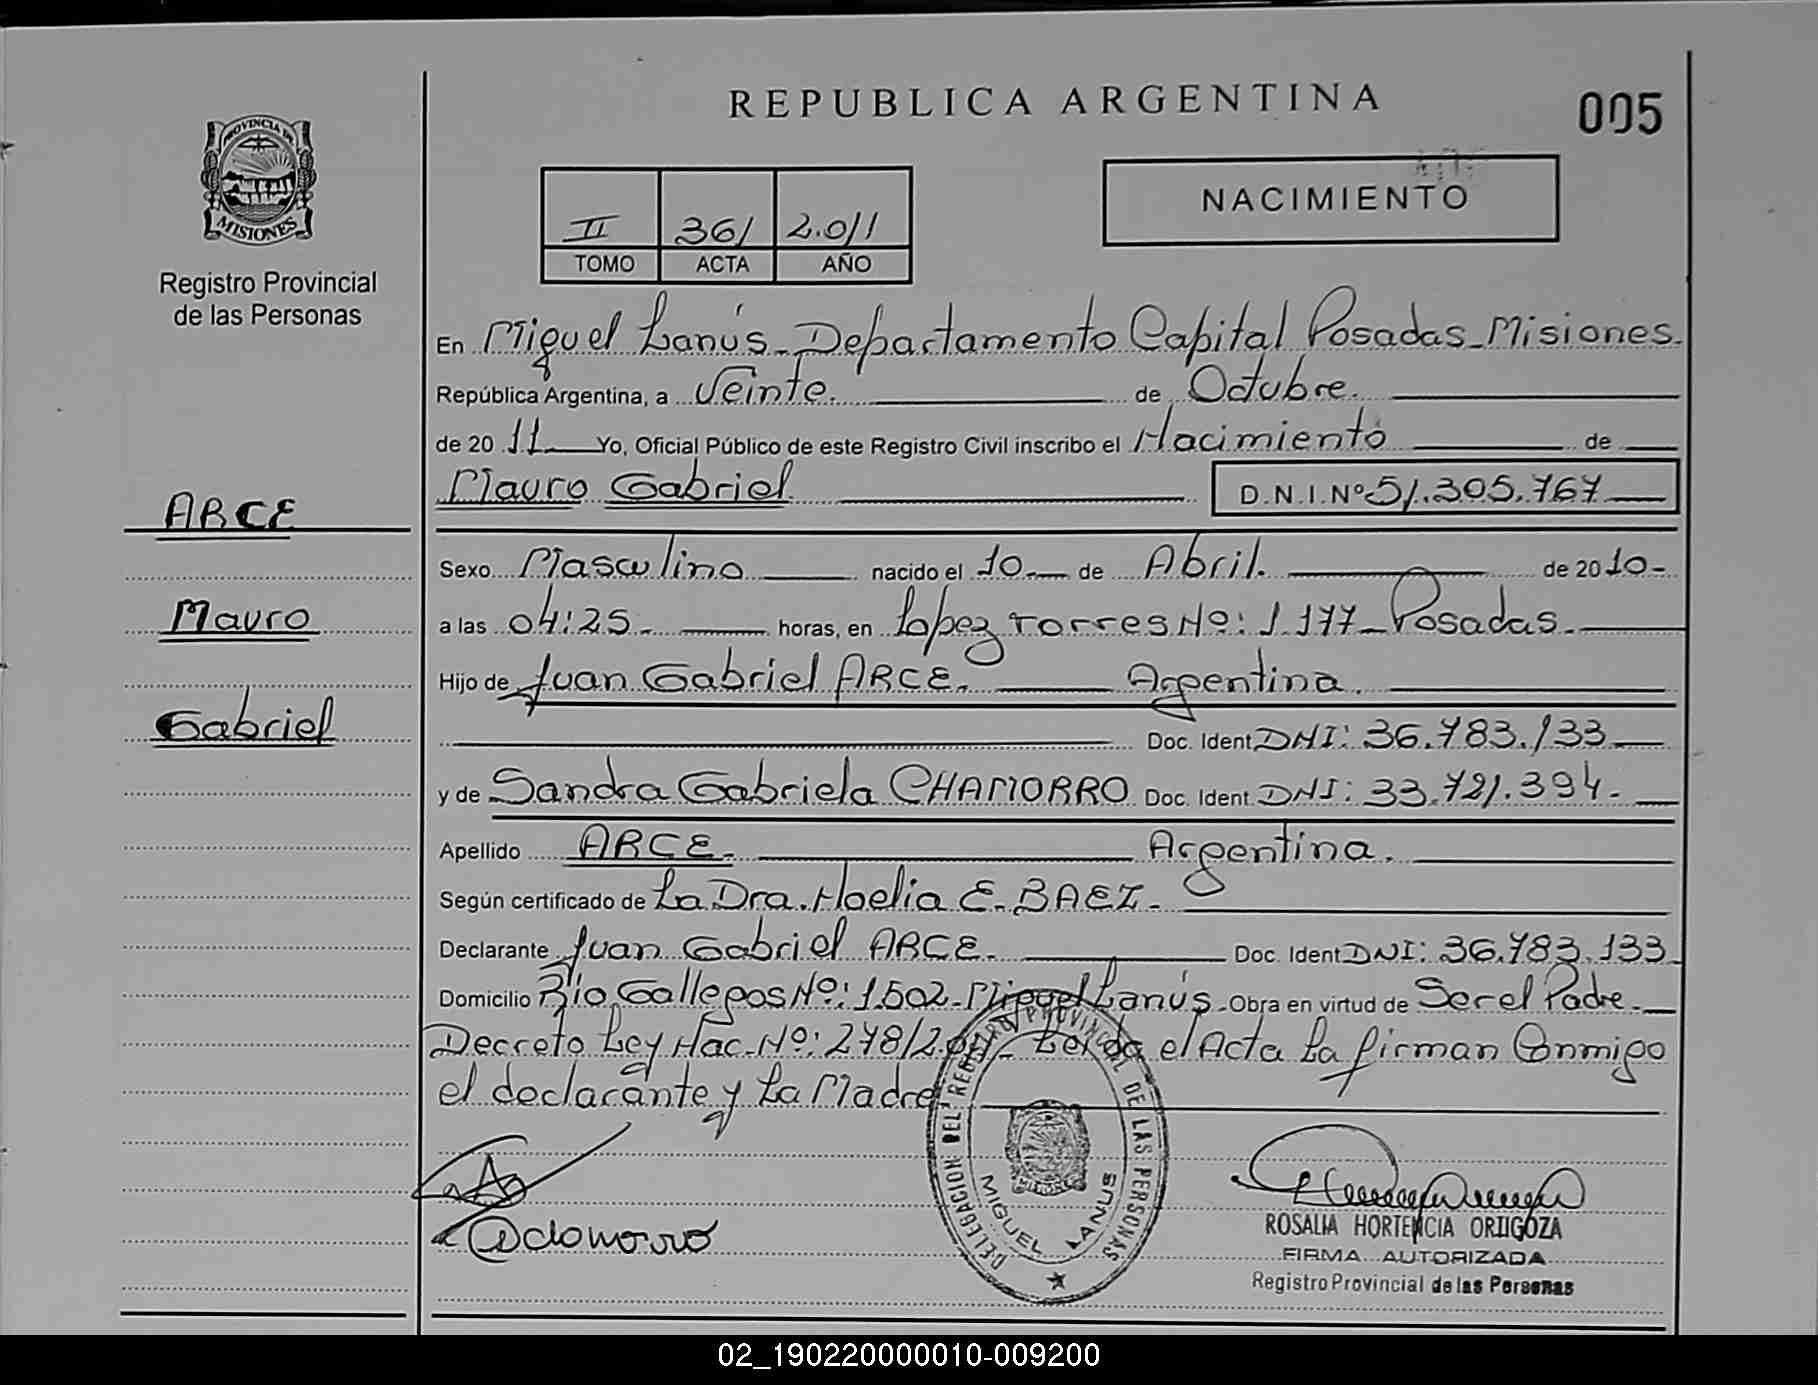 REPUBLICA ARGENTINA
005
PROVINCIA DE
MISIONES
Registro Provincial
de las Personas
NACIMIENTO
II 361 2.011
TOMO ACTA AÑO
En Miguel Lanús - Departamento Capital Posadas - Misiones.
República Argentina, a Veinte. de Octubre.
de 20 11 Yo, Oficial Público de este Registro Civil inscribo el Nacimiento de
Mauro Gabriel D.N.I.Nº 51.305.767
ARCE
Sexo Masculino nacido el 10 de Abril. de 2010-
Mauro
a las 04:25 - horas, en Lopez Torres Nº: 1.177 - Posadas.
Hijo de Juan Gabriel ARCE. Argentina.
Gabriel
Doc. Ident DNI: 36.783.133
y de Sandra Gabriela CHAMORRO Doc. Ident DNI: 33.721.394.
Apellido ARCE. Argentina.
Según certificado de La Dra. Noelia E. BAEZ -
Declarante Juan Gabriel ARCE. Doc. Ident DNI: 36.783.133
Domicilio Río Gallegos Nº: 1502 - Miguel Lanús - Obra en virtud de Ser el Padre -
Decreto Ley Nac. Nº: 278/2.011 - Leida el Acta La firman Conmigo
el declarante y La Madre
DELEGACION DEL REGISTRO PROVINCIAL DE LAS PERSONAS
MIGUEL LANUS
ROSALIA HORTENCIA ORTIGOZA
FIRMA AUTORIZADA
Registro Provincial de las Personas
02_190220000010-009200